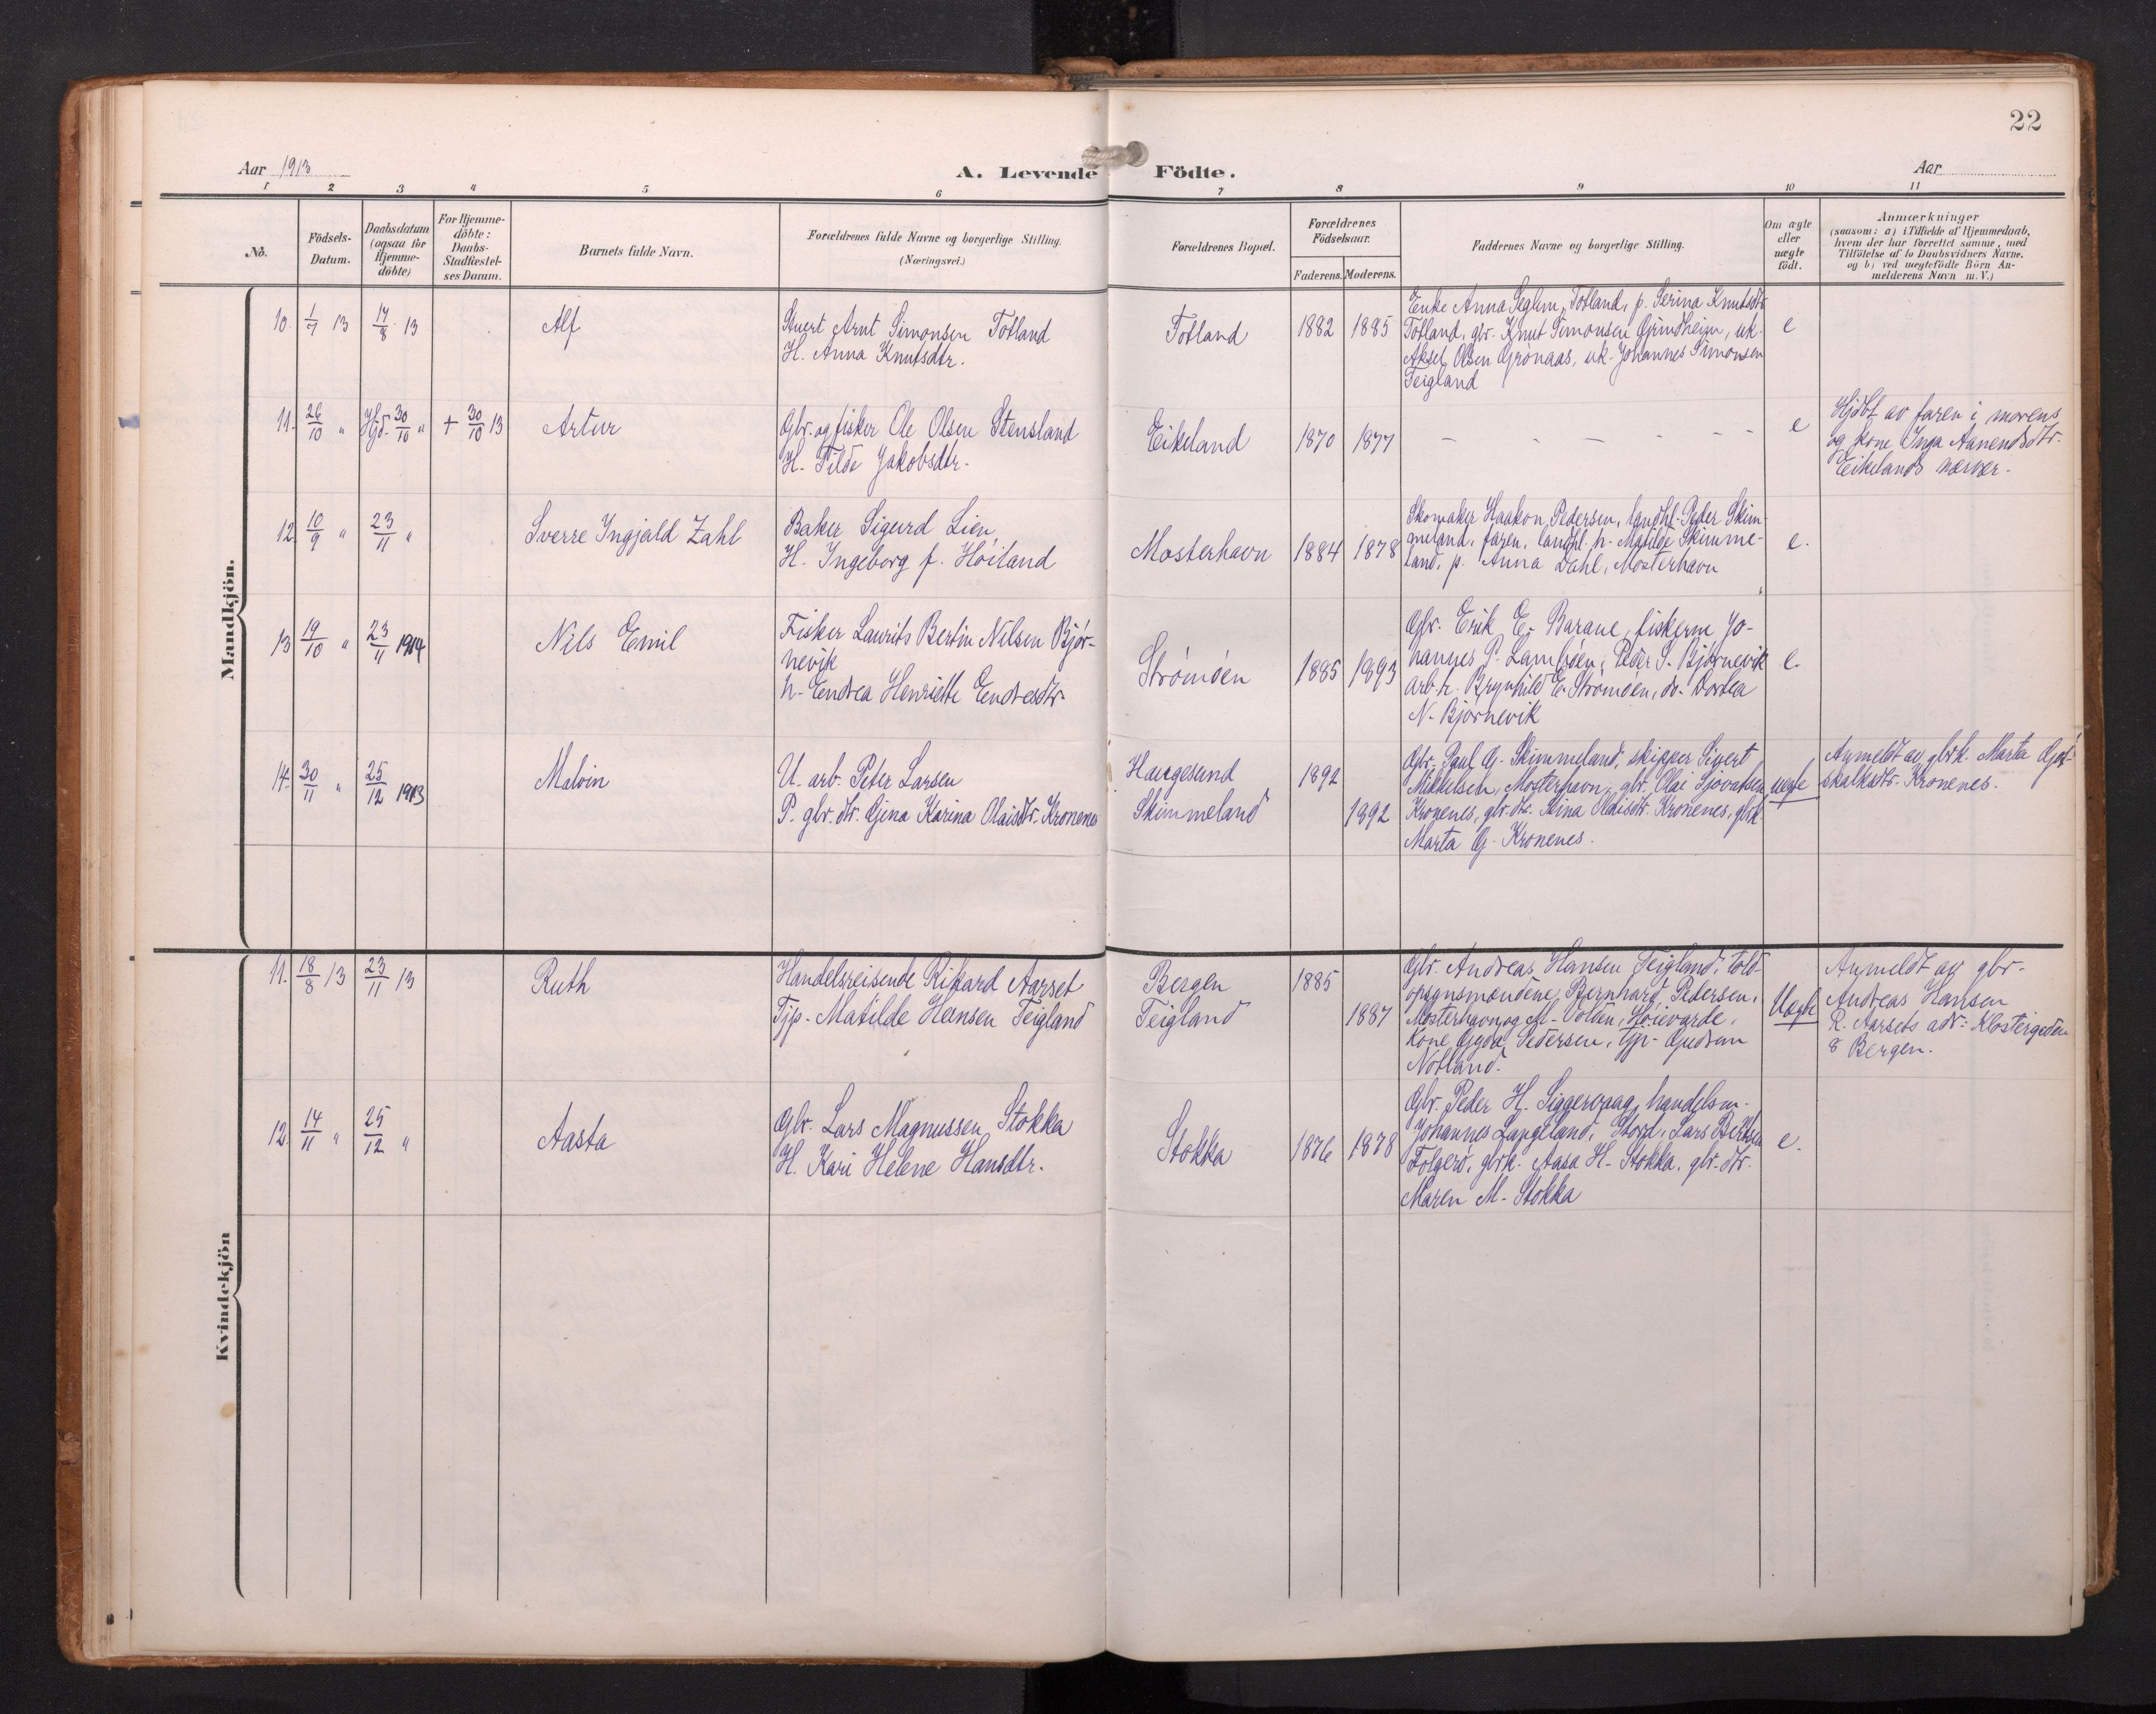 22
Aar 1913
A. Levende Födte.
Aar
1 2 3 4 5 6 7 8 9 10 11
No.
Födsels-
Datum.
Daabsdatum
(ogsaa for
Hjemme-
döbte)
For Hjemme-
döbte:
Daabs-
Stadfæstel-
ses Datum.
Barnets fulde Navn.
Forældrenes fulde Navne og borgerlige Stilling.
(Næringsvei.)
Forældrenes Bopæl.
Forældrenes
Födselsaar.
Faderens. Moderens.
Faddernes Navne og borgerlige Stilling.
Om ægte
eller
uægte
födt.
Anmærkninger
(saasom: a) i Tilfælde af Hjemmedaab,
hvem der har forrettet samme, med
Tilföielse af to Daabsvidners Navne.
og b) ved uægtefödte Börn An-
melderens Navn m. V.)
Mandkjön.
10. 1/7 13 17/8 13
Alf
Stuert Arnt Simonsen Totland
H. Anna Knutsdtr.
Totland
1882 1885
Enke Anna Seglem, Totland, p. Serina Knutsdtr.
Totland, gbr. Knut Simonsen Grindheim, uk.
Aksel Olsen Grønaas, uk. Johannes Simonsen
Teigland
e
11. 26/10 " Hjd. 30/10 " + 30/10 13
Artur
Gbr. og fisker Ole Olsen Stensland
H. Tilda Jakobsdtr.
Eikeland
1870 1877
- - - - - -
e
Hjdbt av faren i morens
og kone Inga Aanendsdtr.
Eikelands nærvær.
12. 10/9 " 23/11 "
Sverre Ingjald Zahl
Baker Sigurd Lien
H. Ingeborg f. Høiland
Mosterhavn
1884 1878
Skomaker Haakon Pedersen, landhl. Peder Skim-
meland, faren, landhl. h. Matilde Skimme-
land, p. Anna Dahl, Mosterhavn
e.
13 19/10 " 23/11 1914
Nils Emil
Fisker Laurits Bertin Nilsen Bjør-
nevik
h. Endrea Henriette Endresdtr.
Strømøen
1885 1893
Gbr. Erik E. Barane, fiskerne Jo-
hannes P. Lambøen, Peder S. Bjørnevik
arb. h. Brynhild E. Strømøen, do. Dortea
N. Bjørnevik
e.
14. 30/11 " 25/12 1913
Malvin
U. arb. Peter Larsen
P. gbr. dtr. Gjena Karina Olaisdtr. Kronenes
Haugesund
Skimmeland
1892
1892
Gbr. Paul G. Skimmeland, skipper Sivert
Mikkelsen, Mosterhavn, gbr. Olai Sjovatsen
Kronenes, gbr. dtr. Stina Olaisdtr. Kronenes, gbrk.
Marta G. Kronenes.
uegte
Anmeldt av gbrk. Marta God-
skalksdtr. Kronenes.
Kvindekjön
11. 18/8 13 23/11 13
Ruth
Handelsreisende Rikard Aarset
Tjp. Matilde Hansen Teigland
Bergen
Teigland
1885
1887
Gbr. Andreas Hansen Teigland, told-
opsynsmændene Bernhard Pedersen,
Mosterhavn og M. Volan, Høievarde,
Kone Gyda Pedersen, tjp. Gudrun
Notland.
Uegte
Anmeldt av gbr.
Andreas Hansen
R. Aarsets adr: Klostergaten
8 Bergen.
12. 14/11 " 25/12 "
Aasta
Gbr. Lars Magnussen Stokka
H. Kari Helene Hansdtr.
Stokka
1876 1878
Gbr. Peder H. Siggervaag, handelsm.
Johannes Langeland, Stord, Lars
Folgerø, gbrk. Aasa H. Stokka, gbr. dtr.
Maren M. Stokka
e.